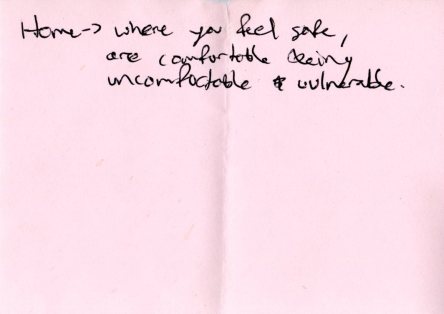 Home -> where you feel safe,
are comfortable being
uncomfortable & vulnerable.